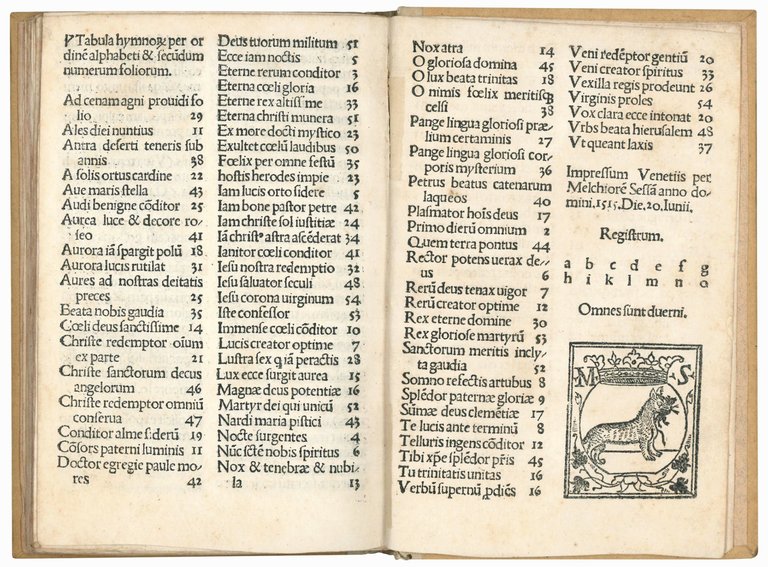 Tabula hymnoꝝ per or
dinē alphabeti & secūdum
numerum foliorum.
Ad cenam agni prouidi so
lio 29
Ales diei nuntius 11
Antra deserti teneris sub
annis 38
A solis ortus cardine 22
Aue maris stella 43
Audi benigne cōditor 25
Aurea luce & decore ro/
seo 41
Aurora iā spargit polū 18
Aurora lucis rutilat 31
Aures ad nostras deitatis
preces 25
Beata nobis gaudia 35
Cœli deus sanctissime 14
Christe redemptor oīum
ex parte 21
Christe sanctorum decus
angelorum 46
Christe redemptor omniū
conserua 47
Conditor alme siderū 19
Cōsors paterni luminis 11
Doctor egregie paule mo/
res 42
Deus tuorum militum 51
Ecce iam noctis 5
Eterne rerum conditor 3
Eterna cœli gloria 16
Eterne rex altissime 33
Eterna christi munera 51
Ex more docti mystico 23
Exultet cœlū laudibus 50
Fœlix per omne festū 35
hostis herodes impie 23
Iam lucis orto sidere 5
Iam bone pastor petre 42
Iam christe sol iustitiæ 24
Iā christꝰ astra ascēderat 34
Ianitor cœli conditor 41
Iesu nostra redemptio 32
Iesu saluator seculi 48
Iesu corona uirginum 54
Iste confessor 53
Immense cœli cōditor 10
Lucis creator optime 7
Lustra sex q iā peractis 28
Lux ecce surgit aurea 15
Magnæ deus potentiæ 16
Martyr dei qui unicū 52
Nardi maria pistici 43
Nocte surgentes 4
Nūc sctē nobis spiritus 6
Nox & tenebræ & nubi/
la 13
Nox atra 14
O gloriosa domina 45
O lux beata trinitas 18
O nimis fœlix meritisqꝫ
celsi 38
Pange lingua gloriosi præ/
lium certaminis 27
Pange lingua gloriosi cor/
poris mysterium 36
Petrus beatus catenarum
laqueos 40
Plasmator hoīs deus 17
Primo dierū omnium 2
Quem terra pontus 44
Rector potens uerax de/
us 6
Rerū deus tenax uigor 7
Rerū creator optime 12
Rex eterne domine 30
Rex gloriose martyrū 53
Sanctorum meritis incly
ta gaudia 52
Somno refectis artubus 8
Splēdor paternæ gloriæ 9
Sūmæ deus clemētiæ 17
Te lucis ante terminū 8
Telluris ingens cōditor 12
Tibi xp̄e splēdor p̄ris 45
Tu trinitatis unitas 16
Verbū supernū ꝓdiēs 16
Veni redēptor gentiū 20
Veni creator spiritus 33
Vexilla regis prodeunt 26
Virginis proles 54
Vox clara ecce intonat 20
Vrbs beata hierusalem 48
Vt queant laxis 37
Impressum Venetiis per
Melchiorē Sessā anno do/
mini. 1515. Die. 20. Iunii.
Registrum.
a b c d e f g
h i k l m n o
Omnes sunt duerni.
M S